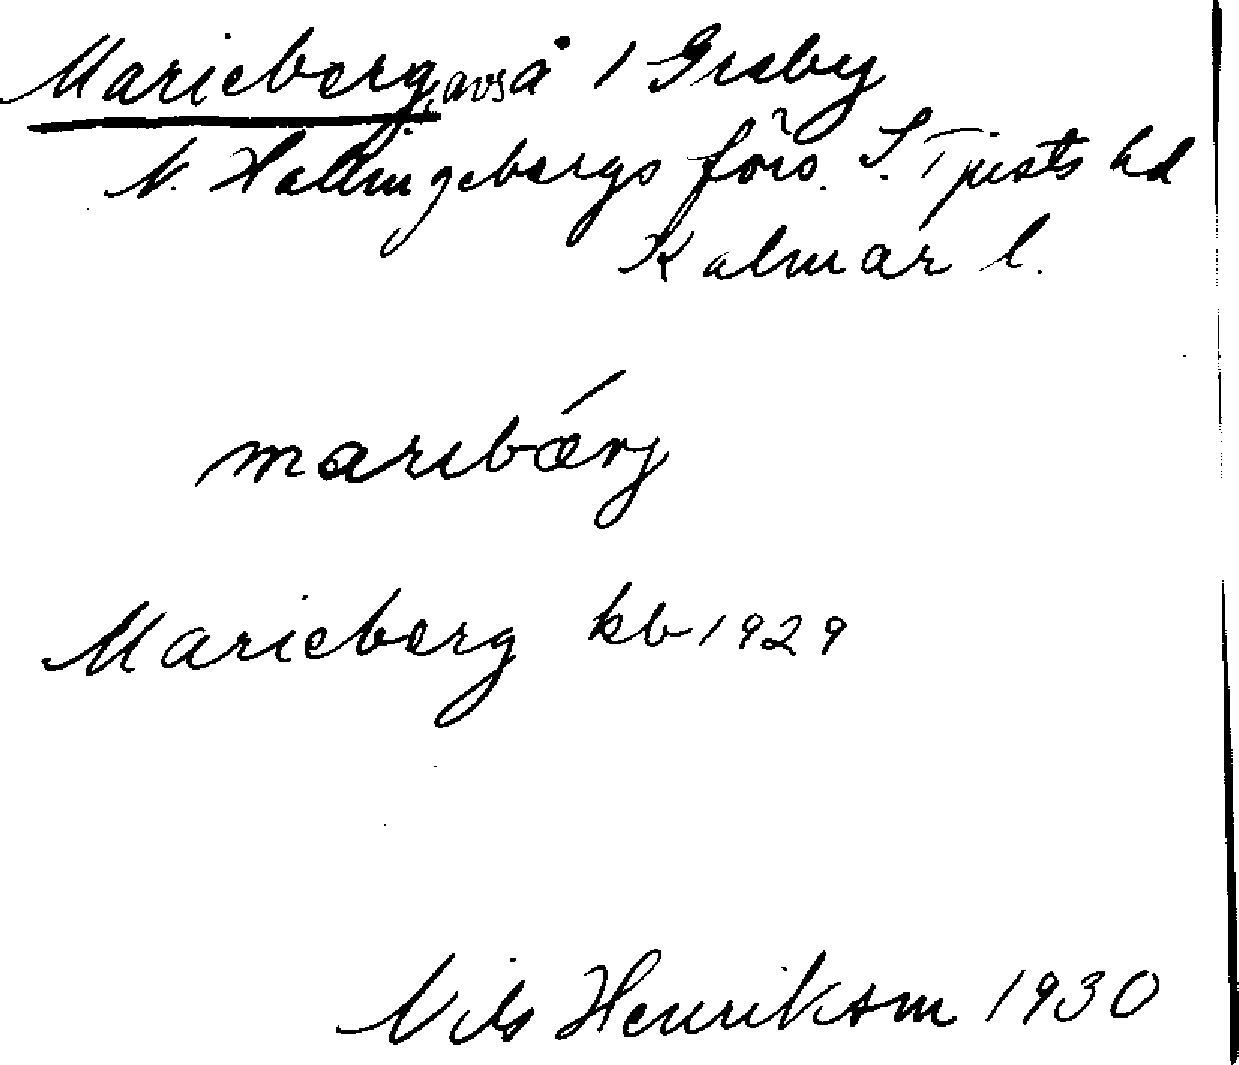 Marieberg, avs å 1 Greby
N. Hallingebergs förs. S. Tjusts hd
Kalmar l.
maribǽrj
Marieberg kb 1929
Nils Henrikson 1930